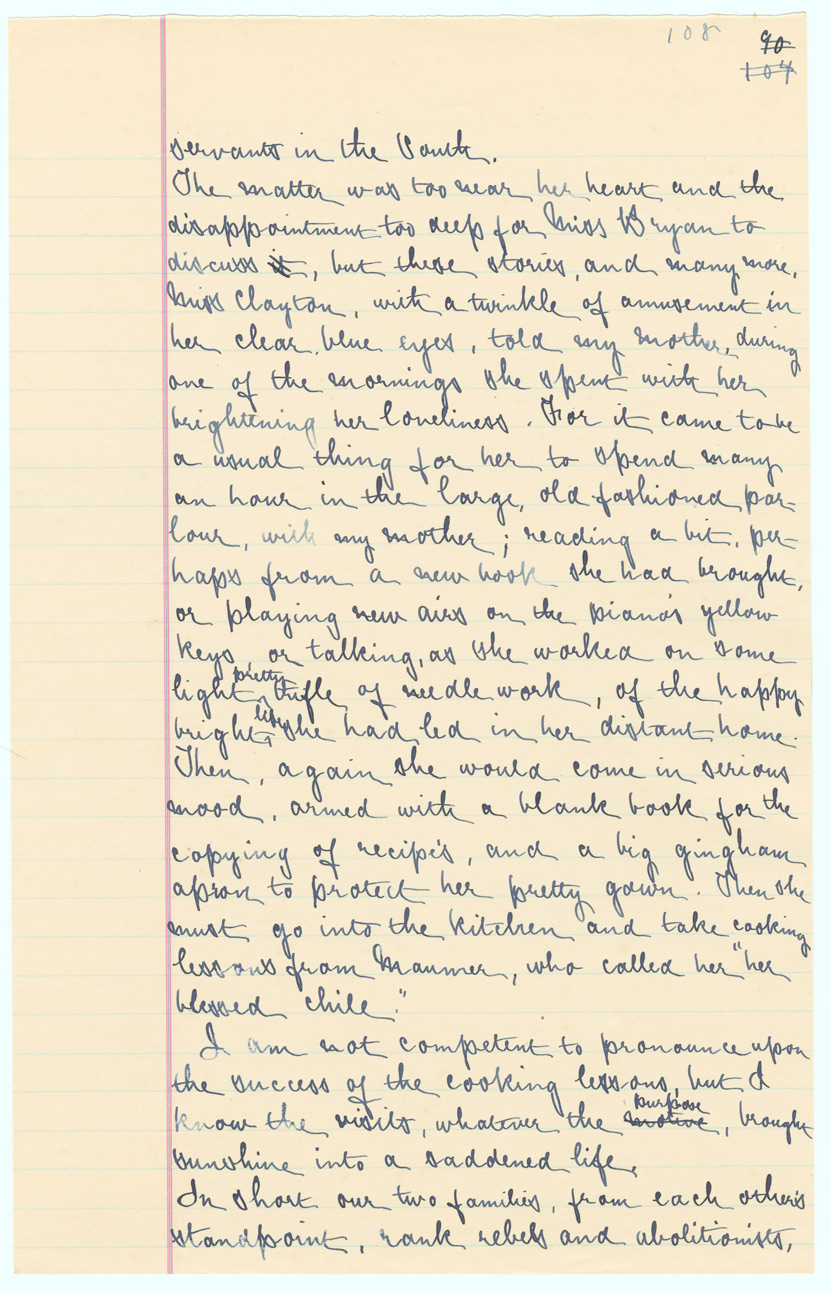 108
90
104
servants in the South.
The matter was too near her heart and the
disappointment too deep for Miss Bryan to
discuss it, but these stories, and many more,
Miss Clayton, with a twinkle of amusement in
her clear, blue eyes, told my mother, during
one of the mornings she spent with her
brightening her loneliness. For it came to be
a usual thing for her to spend many
an hour in the large, old-fashioned par-
lour, with my mother; reading a bit, per-
haps from a new book she had brought,
or playing new airs on the piano's yellow
keys, or talking, as she worked on some
light pretty trifle of needle work, of the happy
bright life she had led in her distant home.
Then, again she would come in serious
mood, armed with a blank book for the
copying of recipe's, and a big gingham
apron to protect her pretty gown. Then she
must go into the kitchen and take cooking
lessons from Maumer, who called her "her
blessed chile."
I am not competent to pronounce upon
the success of the cooking lessons, but I
know the visits, whatever the motive purpose, brought
sunshine into a saddened life.
In short our two families, from each other's
standpoint, rank rebels and abolitionists,